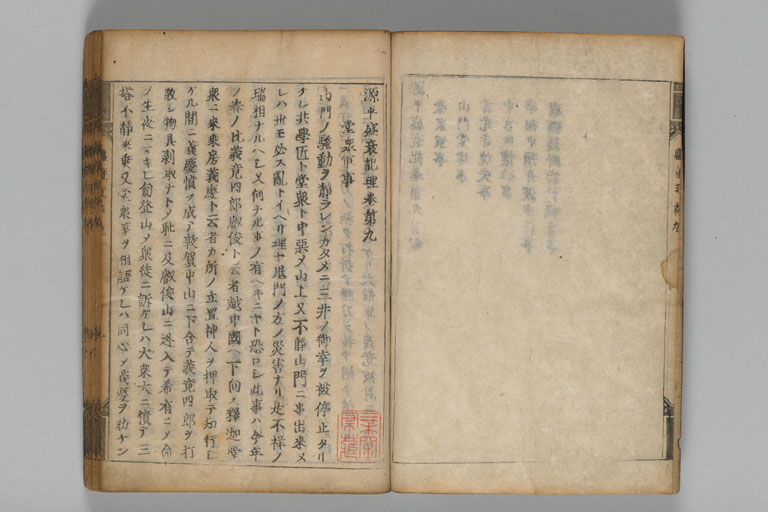 源平盛衰記理卷第九
堂衆軍事
山門ノ騒動ヲ静ラレンカタメニ三井ノ御幸ヲ被停止タリ
ケレ共學匠ト堂衆ト中悪メ山上又不静山門ニ事出来メ
レハ世モ必ス亂トイヘリ理ヤ鬼門ノ方ノ災害ナリ是不祥ノ
瑞相ナルヘシ又何ナル事ノ有ヘキニヤト恐ロシ此事ハ今年
ノ春ノ比義竟四郎叡俊ト云者越中國ヘ下向ノ釋迦堂
衆ニ来乗房義慶ト云者カ所ノ立置神人ヲ押取テ知行シ
ケル間ニ義慶憤ヲ成テ敦賀中山ニ下合テ義竟四郎ヲ打
散シ物具剥取ナトメ耻ニ及叡俊山ニ迯入テ希有ニメ命
ノ生夜ニマキレ匍登山メ衆徒ニ訴ケレハ大衆大ニ憤テ三
塔不静来乗又堂衆等ヲ相語ケレハ同心メ義慶ヲ助ケン